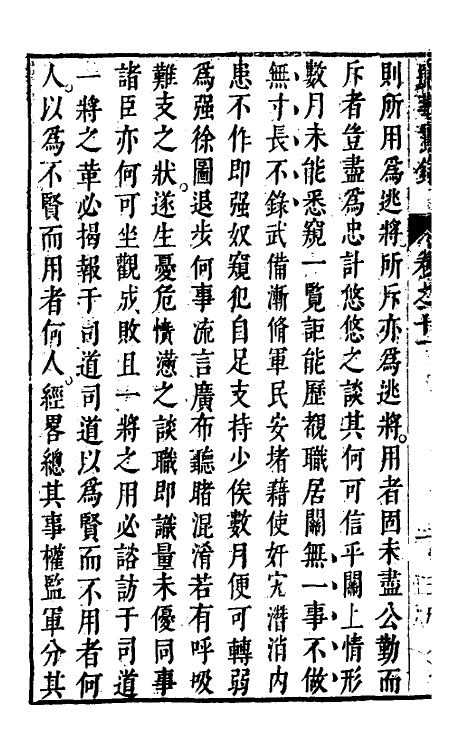 則所用爲逃將所斥亦爲逃將。用者固未盡公勤而
斥者豈盡爲忠計悠悠之談其何可信乎關上情形
數月未能悉窺一覽詎能歷覩職居關無一事不做
無寸長不錄武備漸脩軍民安堵藉使奸宄潛消內
患不作即强奴窺犯自足支持少俟數月便可轉弱
爲强徐圖退步何事流言廣布聽睹混淆若有呼吸
難支之狀遂生憂危憤懣之談職即識量未優同事
諸臣亦何可坐觀成敗且一將之用必諮訪于司道
一將之革必揭報于司道司道以爲賢而不用者何
人。以爲不賢而用者何人。經畧總其事權監軍分其